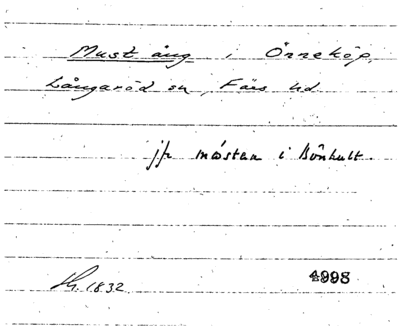 Must äng i Örneköp,
Långaröd sn, Färs hd
jfr mostan i Bönhult.
1832
4998